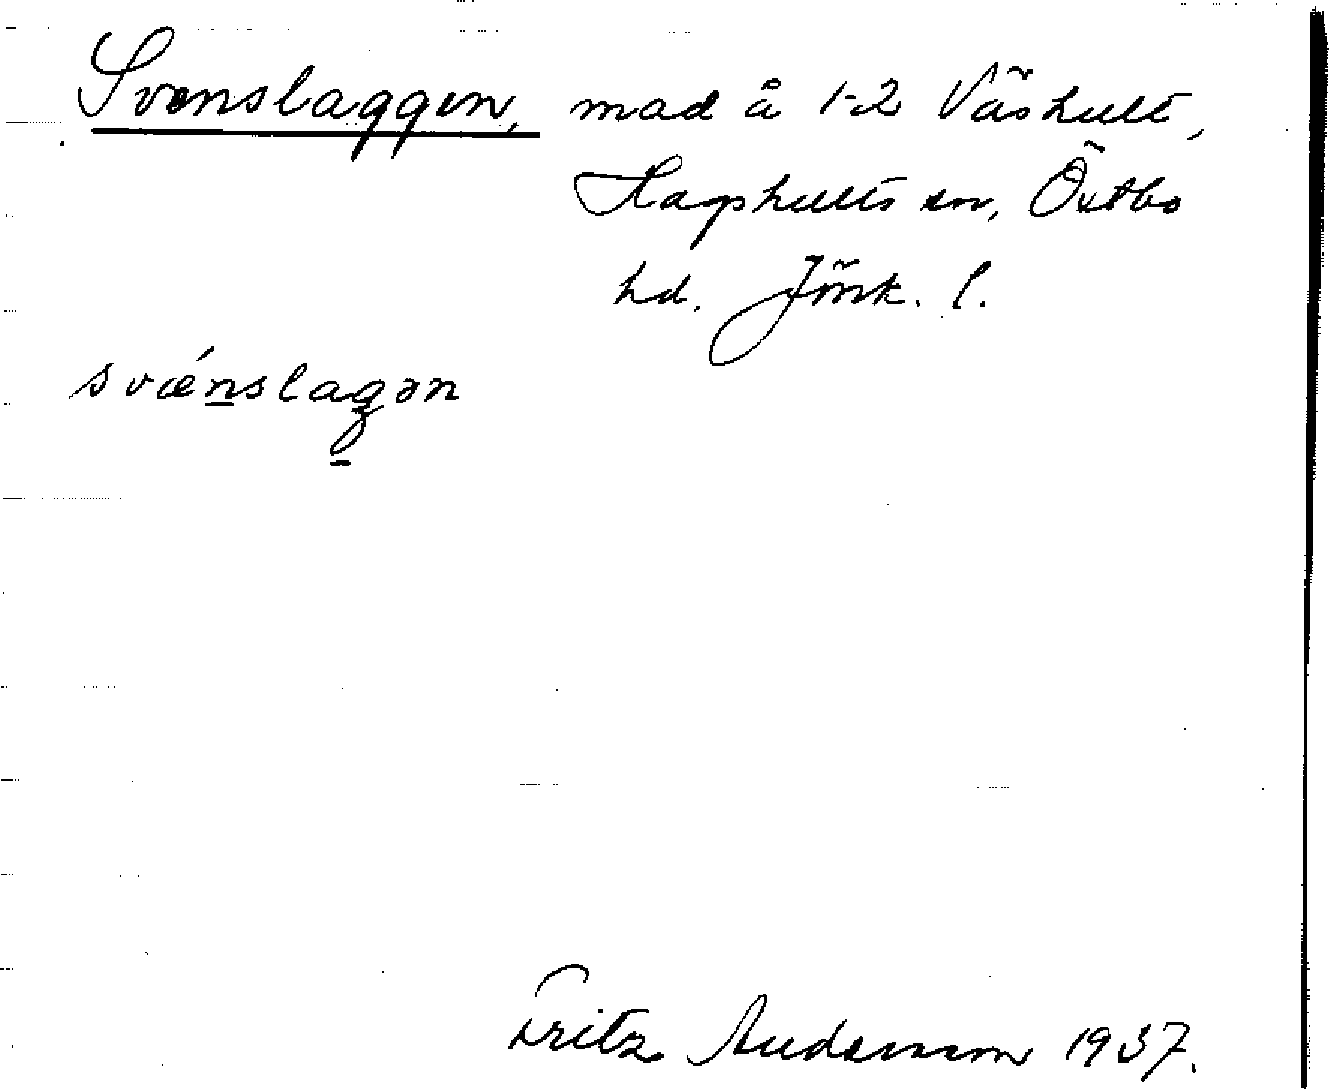 Svenslaggen, mad å 1-2 Väshult,
Hagshults sn, Östbo
hd. Jönk. l.
svǽnslagən
Fritz Andersson 1937.